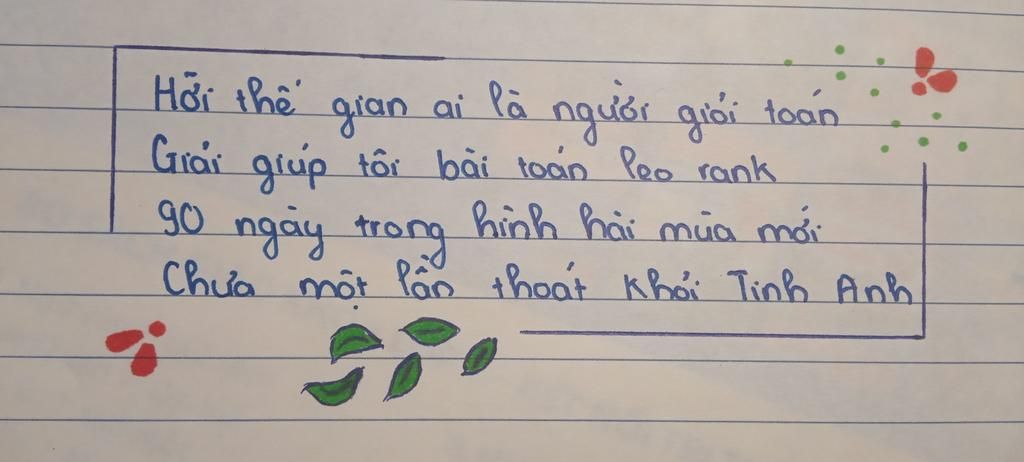 Hỡi thế gian ai là người giỏi toán
Giải giúp tôi bài toán leo rank
90 ngày trong hình hài mùa mới
Chưa một lần thoát khỏi Tinh Anh